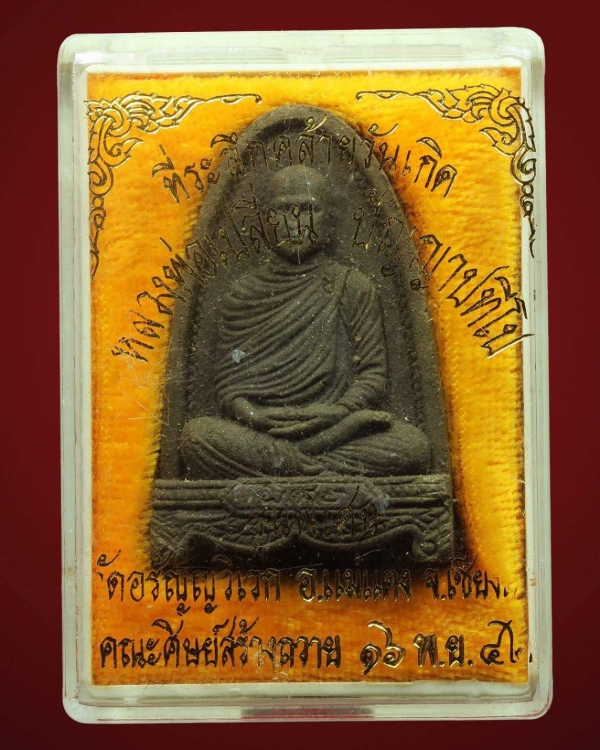 ที่ระลึกคล้ายวันเกิด
หลวงพ่อเปลี่ยน ปัญญาปทีโป
วัดอรัญญวิเวก อ.แม่แตง จ.เชียง
คณะศิษย์สร้างถวาย ๑๖ พ.ย. ๔